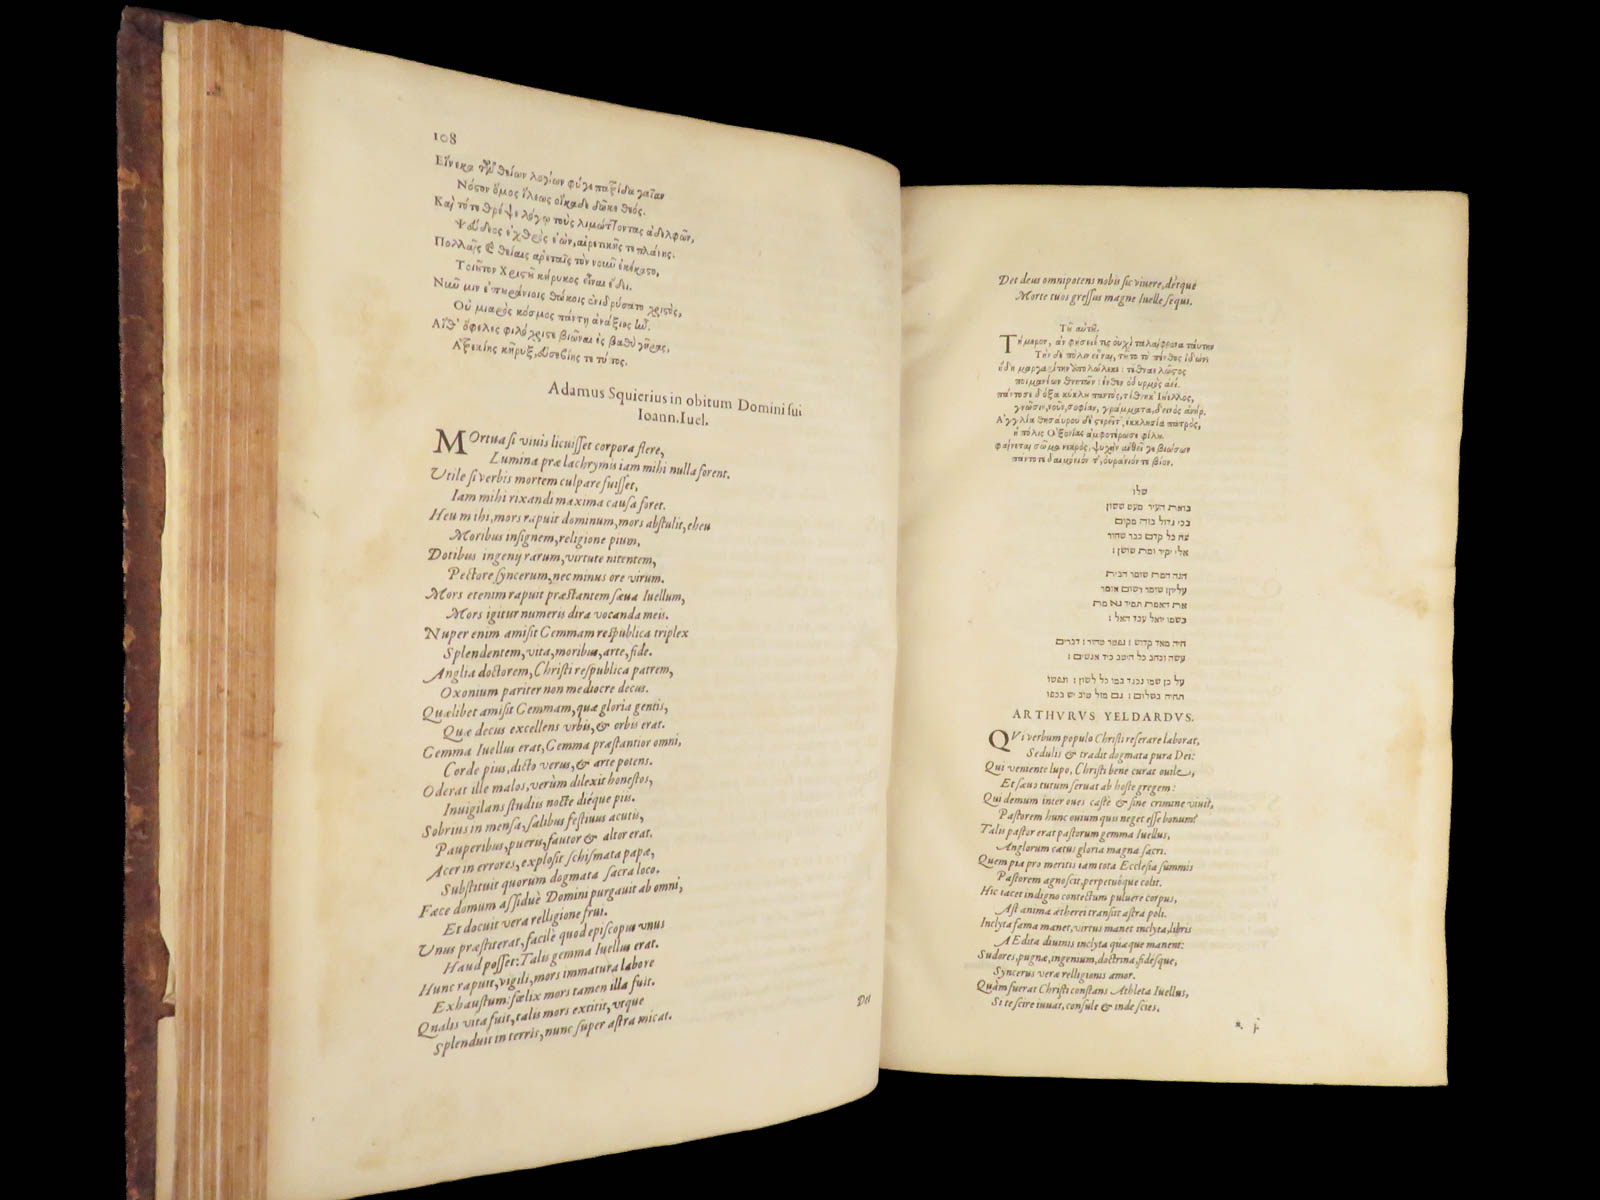 108
Εἵνεκα τῶν θείων λογίων φύγε πατρίδα γαῖαν
Νόστον ὅμος ἵλεως οἴκαδε δῶκε θεός.
Καὶ τότε θρέψε λόγῳ τοὺς λιμώττοντας ἀδελφῶν,
Ψεύδεος ἐχθρὸς ἐὼν, αἱρετικῆς τε πλάνης.
Πολλαῖς καὶ θείαις ἀρεταῖς τὸν νοῦν ἐκέκαστο,
Τοιοῦτον Χριστοῦ κήρυκος εἶναι ἔδει.
Νῦν μιν ἐπουρανίοις θώκοις ἐνιδρύσατο χριστὸς,
Οὗ μιαρὸς κόσμος πάντη ἀνάξιος
Αἴθ' ὄφελες φιλόχριστε βιῶναι ἐς βαθὺ γῆρας,
Ἀτρεκίης κῆρυξ, εὐσεβίης τε τύπος.
Adamus Squierius in obitum Domini sui
Ioann. Iuel.
MOrtua si vivis licuisset corpora flere,
Lumina præ lachrymis iam mihi nulla forent.
Utile si verbis mortem culpare fuisset,
Iam mihi rixandi maxima causa foret.
Heu mihi, mors rapuit dominum, mors abstulit, eheu
Moribus insignem, religione pium,
Dotibus ingenij rarum, virtute nitentem,
Pectore syncerum, nec minus ore virum.
Mors etenim rapuit præstantem sæua Iuellum,
Mors igitur numeris dira vocanda meis.
Nuper enim amisit Gemmam respublica triplex
Splendentem, vita, moribus, arte, fide.
Anglia doctorem, Christi respublica patrem,
Oxonium pariter non mediocre decus.
Quælibet amisit Gemmam, quæ gloria gentis,
Quæ decus excellens vrbis, & orbis erat.
Gemma Iuellus erat, Gemma præstantior omni,
Corde pius, dicto verus, & arte potens.
Oderat ille malos, verùm dilexit honestos,
Inuigilans studiis nocte diéque piis.
Sobrius in mensa, salibus festiuus acutis,
Pauperibus, pueris, fautor & altor erat.
Acer in errores, explosit schismata papæ,
Substituit quorum dogmata sacra loco.
Fæce domum assiduè Domini purgauit ab omni,
Et docuit vera relligione frui.
Unus præstiterat, facilè quod episcopus vnus
Haud posset: Talis gemma Iuellus erat.
Hunc rapuit, vigili, mors immatura labore
Exhaustum: fœlix mors tamen illa fuit.
Qualis vita fuit, talis mors extitit, vtque
Splenduit in terris, nunc super astra micat.
Det
Det deus omnipotens nobis sic viuere, détque
Morte tuos gressus magne Iuelle sequi.
Τοῦ αὐτοῦ.
γνῶσιν, νοῦν, σοφίαν, γράμματα, δεινὸς ἀνήρ.
ἡ πόλις Ὀξονίας ἀμφοτέρωσε φίλη.
שלו
בכי גדול בזה מקום
שה כל קדם כבר שחור
אלי יקיר ומת שושן :
הנה המת שומר הבית
בשמו יואל עבד האל :
חיה מאד קדוש : נפטר טהור : דברים
עשה וכתב כל היטב ביד אנשים :
על כן שמו נכבד במו כל לשון : ונפשו
תחיה בשלום : גם מול טוב יש בכפו
ARTHVRVS YELDARDVS.
QVi verbum populo Christi reserare laborat,
Sedulis & tradit dogmata pura Dei:
Qui veniente lupo, Christi bene curat ouile,
Et sæuo tutum seruat ab hoste gregem:
Qui demum inter oues castè & sine crimine viuit,
Pastorem hunc ouium quis neget esse bonum?
Talis pastor erat pastorum gemma Iuellus,
Anglorum cætus gloria magna sacri.
Quem pia pro meritis iam tota Ecclesia summis
Pastorem agnoscit, perpetuóque colit.
Hic iacet indigno contectum puluere corpus,
Ast anima ætherei transiit astra poli.
Inclyta fama manet, virtus manet inclyta, libris
AEdita diuinis inclyta quæque manent:
Sudores, pugnæ, ingenium, doctrina, fidesque,
Syncerus veræ relligionis amor.
Quàm fuerat Christi constans Athleta Iuellus,
Si te scire iuuat, consule & inde scies.
*. j.